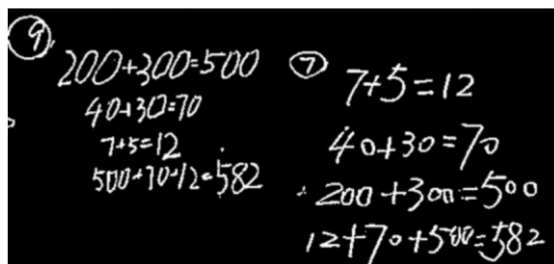 ⑨
200+300=500
40+30=70
7+5=12
500+70+12=582
⑦
7+5=12
40+30=70
200+300=500
12+70+500=582